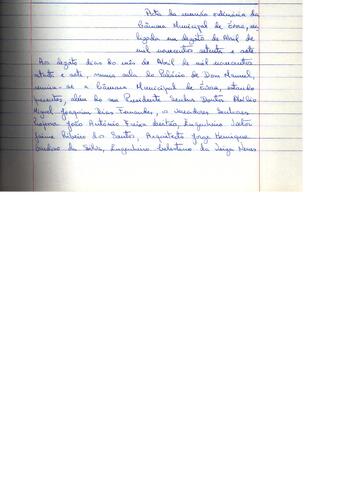 Acta da reunião ordinária da
Câmara Municipal de Évora, rea
lizada em dezoito de Abril de
mil novecentos setenta e sete
Aos dezoito dias do mês de Abril de mil novecentos
setenta e sete, numa sala do Palácio de Dom Manuel,
reuniu-se a Câmara Municipal de Évora, estando
presentes, além do seu Presidente Senhor Doutor Abílio
Miguel Joaquim Dias Fernandes, os Vereadores Senhores
João António Frei Engenheiro
Jaime Ribeiro dos Santos, Arquitecto Jorge Henrique
da Silva, Engenheiro Celestino da Veiga Neves